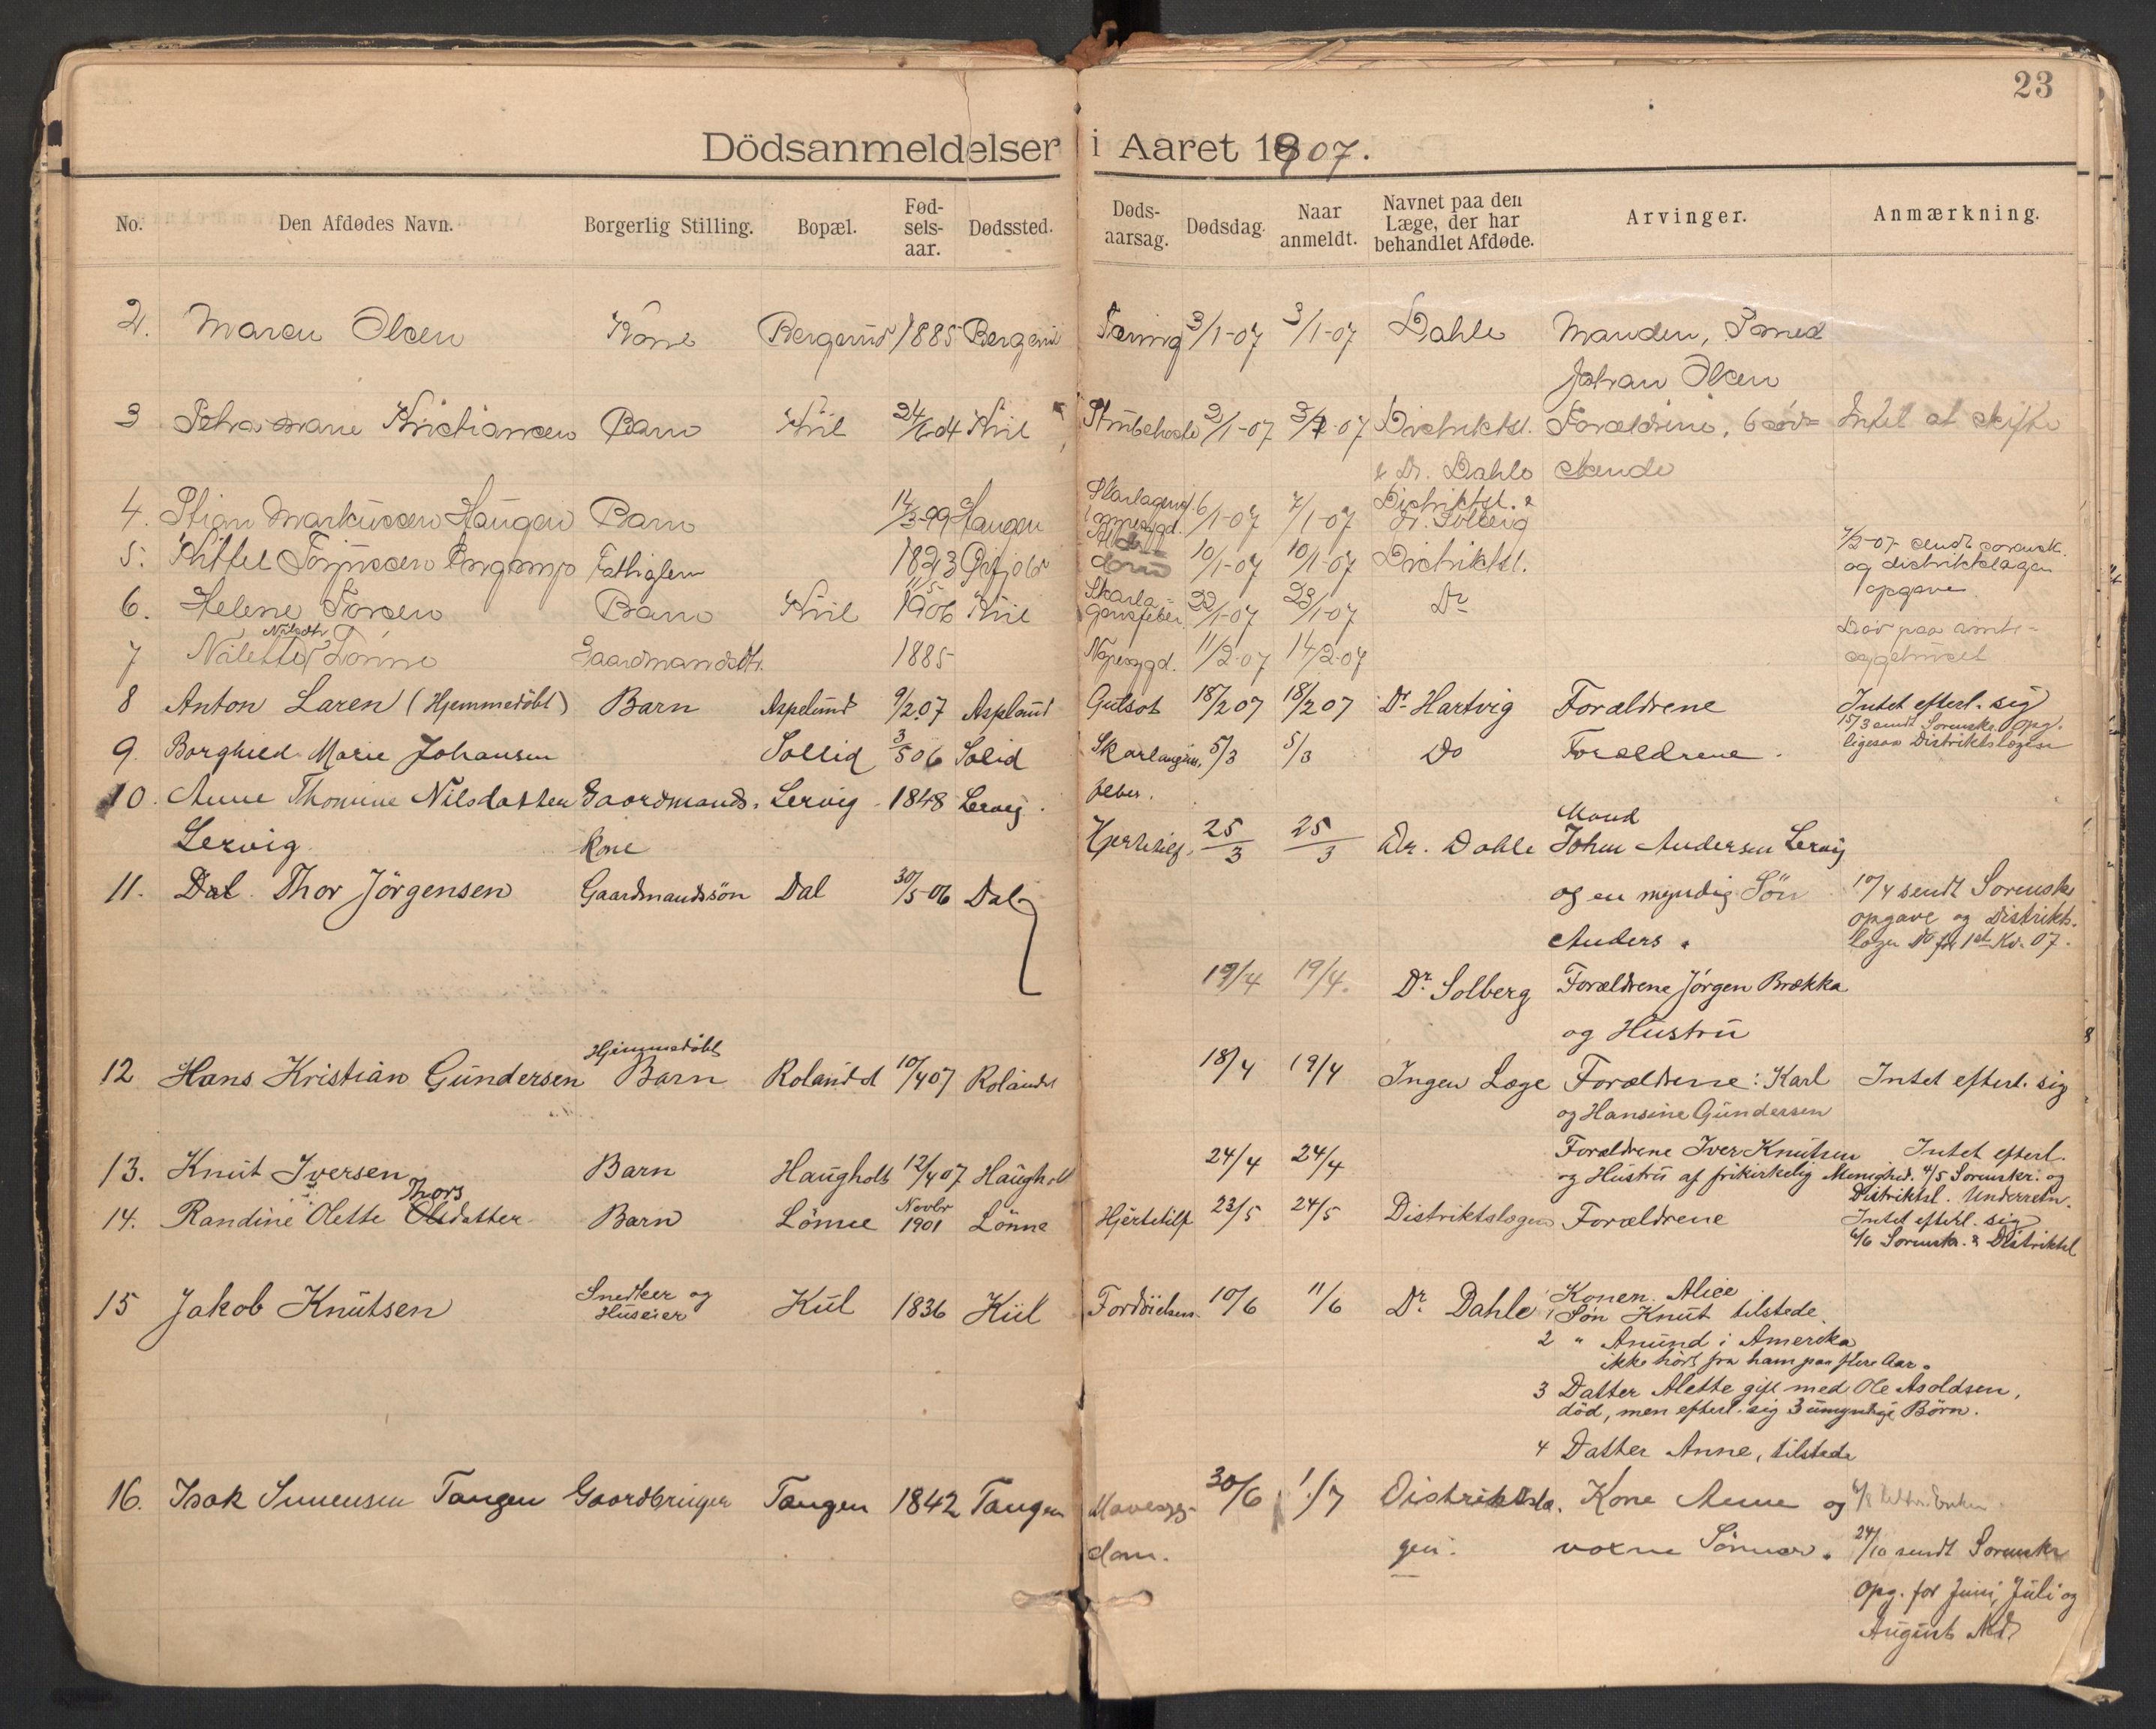 23
Dödsanmeldelser i Aaret 1907.
No. Den Afdødes Navn. Borgerlig Stilling. Bopæl. Fød-sels-aar. Dødssted. Døds-aarsag. Dødsdag. Naar anmeldt. Navnet paa den Læge, der har behandlet Afdøde. Arvinger. Anmærkning.
2. Maren Olsen Kone Bergerud 1885 Bergerud Tæring 3/1-07 3/1-07 Dahle Manden, Smed
Johan Olsen
3 Petra Marie Kristiansen Barn Kiil 24/6-04 Kiil Strubehoste 2/1-07 3/1-07 Distriktsl. Forældrene, 6 sød- Intet at skifte
& Dr. Dahle skende
4. Stian Markussen Haugen Barn 14/3-99 Haugen 6/1-07 7/1-07 Distriktsl. &
Dr. Solberg
5. Kittel Fattiglem 1823 10/1-07 10/1-07 Distriktsl. 7/2-07 sendt sorensk.
og distriktslægen
opgave
6. Helene Barn Kiil 11/5 1906 Kiil Skarla-
gensfeber. 22/1-07 23/1-07 Do
7 Nilette Nilsdtr Lønne Gaardmandsdtr. 1885 11/2-07 14/2-07 Død paa amts-
sygehuset
8 Anton Laren (Hjemmedöbt) Barn Aspelund 9/2 07 Aspelund Gulsot 18/2 07 18/2 07 Dr. Hartvig Forældrene Intet efterl. sig
15/3 sendt Sorenskr. Opg.
ligesaa Distriktslægen
9. Borghild Marie Johansen Sollid 3/5 06 Solid Skarlagens. 5/3 5/3 Do Forældrene.
feber.
10. Anne Thomine Nilsdatter Gaardmands. Lervig 1848 Lervig.
Mand
Lervig. Kone Hjertetilf. 25/3 25/3 Dr. Dahle Johan Andersen Lervig
11. Dal. Thor Jörgensen Gaardmandssön Dal 30/5-06 Dal og en myndig Sön 10/4 sendt Sorenskr
opgave og Distrikts.
Anders. læger Do for 1st Kv. 07.
19/4 19/4. Dr. Solberg Forældrene Jörgen Brækka
og Hustru
Hjemmedöbt
12 Hans Kristian Gundersen Barn Rolandd 10/4 07 Rolandd 18/4 19/4 Ingen Læge Forældrene: Karl Intet efterl. sig
og Hansine Gundersen
13. Knut Iversen Barn Haugholt 12/4 07 Haugholt 24/4 24/4 Forældrene Iver Knutsen Intet efterl.
og Hustru af frikirkelig Menighed. 4/5 Sorenskr. og
Distriktsl. Underretn.
Thors
14. Randine Olette Olsdatter Barn Lönne Novbr 1901 Lönne Hjertetilf 23/5 24/5 Distriktslægen Forældrene Intet efterl. sig
6/6 Sorenskr. & Distriktsl
15 Jakob Knutsen Snedker og
Huseier Kiil 1836 Kiil Fordöielsen. 10/6 11/6 Dr. Dahle Konen Alice
1 Søn Knut tilstede.
2 " Anund i Amerika
ikke hört fra ham paa flere Aar.
3 Datter Alette gift med Ole Asoldsen,
död, men efterl. sig 3 umyndige Börn.
4 Datter Anne, tilstede
16. Isak Simensen Tangen Gaardbruger Tangen 1842 Tangen Mavesyg-
dom. 30/6 1/7 Distriktslæ.
gen. Kone Anne og
voxne Sönner. 24/10 sendt Sorenskr
Opg. for Juni, Juli og
August Md.